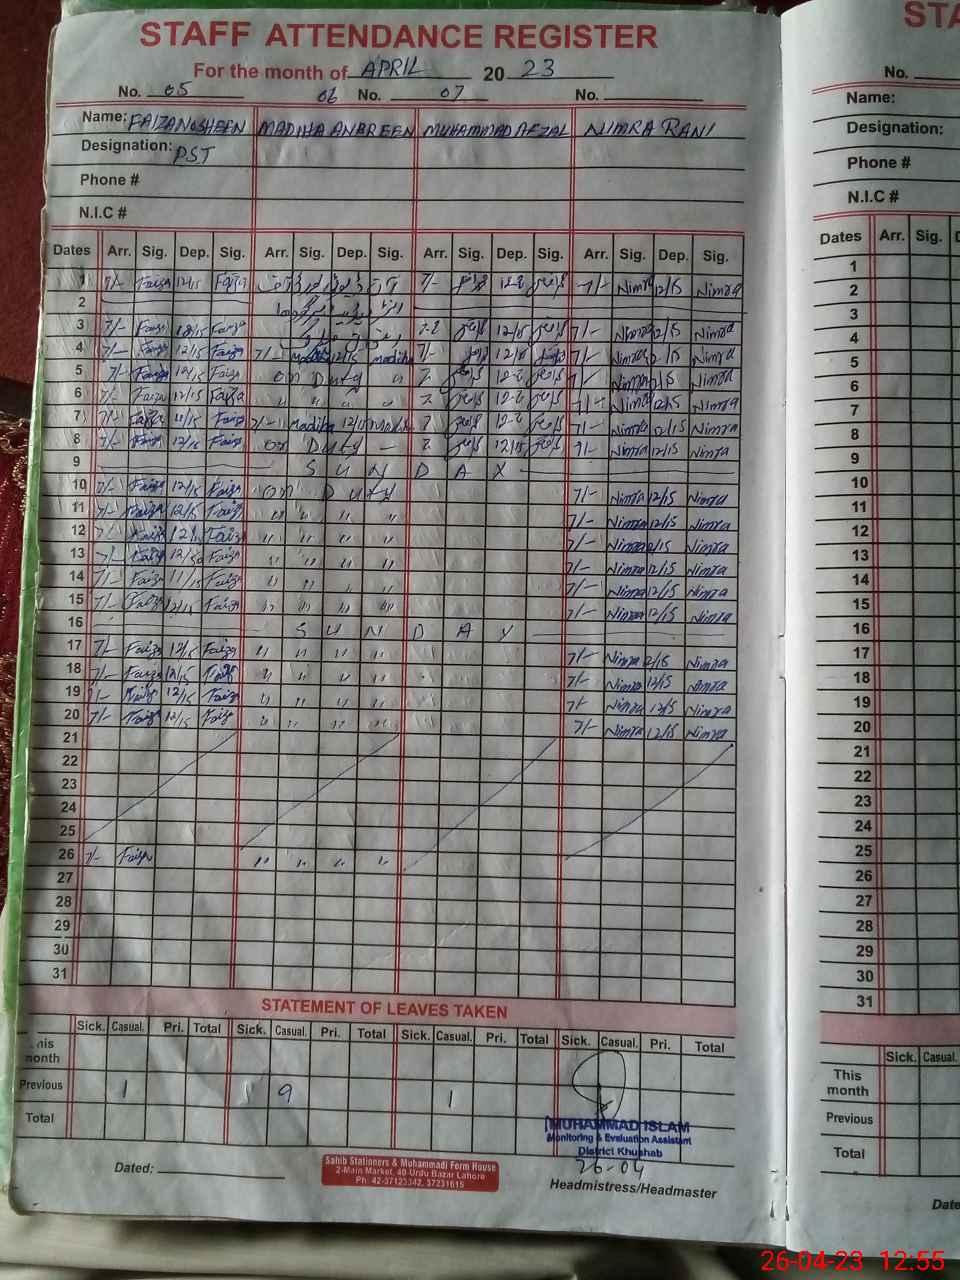 STAFF ATTENDANCE REGISTER
For the month of APRIL 20 23
No. 05 06 No. 07 No.
Name: FAIZA NOSHEEN MADIHA ANBREEN MUHAMMAD AFZAL NIMRA RANI
Designation: PST
Phone #
N.I.C #
Dates Arr. Sig. Dep. Sig. Arr. Sig. Dep. Sig. Arr. Sig. Dep. Sig. Arr. Sig. Dep. Sig.
1 7/- Faiza 12/15 Faiza 7/- 7/- Nimra 12/15 Nimra
2
3 7/- Faiza Faiza 12/15 7/- Nimra 12/15 Nimra
4 7/- Faiza 12/15 Faiza 7/- Madiha 12/15 madiha 7/- 7/- Nimra 12/15 Nimra
5 7/- Faiza 12/15 Faiza on Duty " Nimra 12/15 Nimra
6 7/- Faiza 12/15 Faiza " " " " Nimra 12/15 Nimra
7 7/- Faiza 11/15 Faiza 7/- Madiha 12/15 7/- Nimra 12/15 Nimra
8 7/- Faiza 12/15 Faiza on Duty - 12/15 7/- Nimra 12/15 Nimra
9 S U N D A Y
10 7/- Faiza 12/15 Faiza on Duty 7/- Nimra 12/15 Nimra
11 7/- Faiza 12/15 Faiza " " " " 7/- Nimra 12/15 Nimra
12 7/- Faiza Faiza " " " " 7/- Nimra 12/15 Nimra
13 7/- Faiza Faiza " " " " 7/- Nimra 12/15 Nimra
14 7/- Faiza 11/15 Faiza " " " " 7/- Nimra 12/15 Nimra
15 7/- Faiza 12/15 Faiza " " " " 7/- Nimra 12/15 Nimra
16 S U N D A Y
17 7/- Faiza 12/15 Faiza " " " " 7/- Nimra 12/15 Nimra
18 7/- Faiza 12/15 Faiza " " " " 7/- Nimra 12/15 Nimra
19 7/- Faiza 12/15 Faiza " " " " 7/- Nimra 12/15 Nimra
20 7/- Faiza 12/15 Faiza " " " " 7/- Nimra 12/15 Nimra
21
22
23
24
25
26 7/- Faiza " " " "
27
28
29
30
31
STATEMENT OF LEAVES TAKEN
Sick. Casual. Pri. Total Sick. Casual. Pri. Total Sick. Casual. Pri. Total Sick. Casual. Pri. Total
This month
Previous 1 9 1
Total
MUHAMMAD ISLAM
Monitoring & Evaluation Assistant
District Khushab
26-04
Dated:
Sahib Stationers & Muhammadi Form House
2-Main Market, 40-Urdu Bazar Lahore
Ph: 42-37123342, 37231615
Headmistress/Headmaster
STA
No.
Name:
Designation:
Phone #
N.I.C #
Dates Arr. Sig. D
1
2
3
4
5
6
7
8
9
10
11
12
13
14
15
16
17
18
19
20
21
22
23
24
25
26
27
28
29
30
31
Sick. Casual.
This month
Previous
Total
Date
26-04-23 12:55